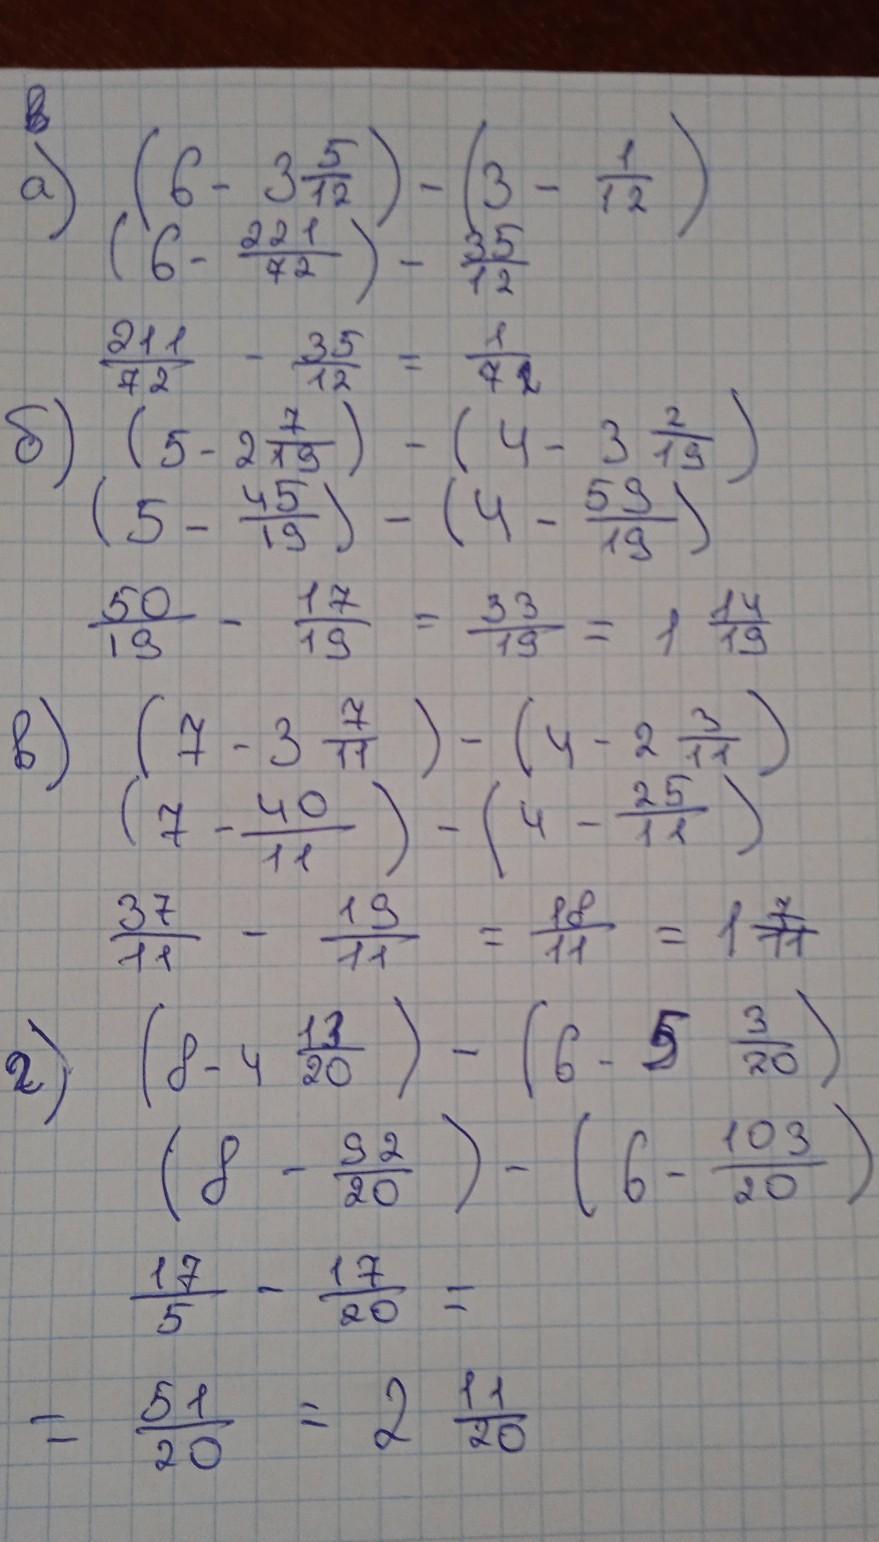 в
а) (6 - 3 5/12) - (3 - 1/12)
(6 - 221/72) - 35/12
211/72 - 35/12 = 1/72
б) (5 - 2 7/19) - (4 - 3 2/19)
(5 - 45/19) - (4 - 59/19)
50/19 - 17/19 = 33/19 = 1 14/19
в) (7 - 3 7/11) - (4 - 2 3/11)
(7 - 40/11) - (4 - 25/11)
37/11 - 19/11 = 18/11 = 1 7/11
г) (8 - 4 13/20) - (6 - 5 3/20)
(8 - 92/20) - (6 - 103/20)
17/5 - 17/20 =
= 51/20 = 2 11/20